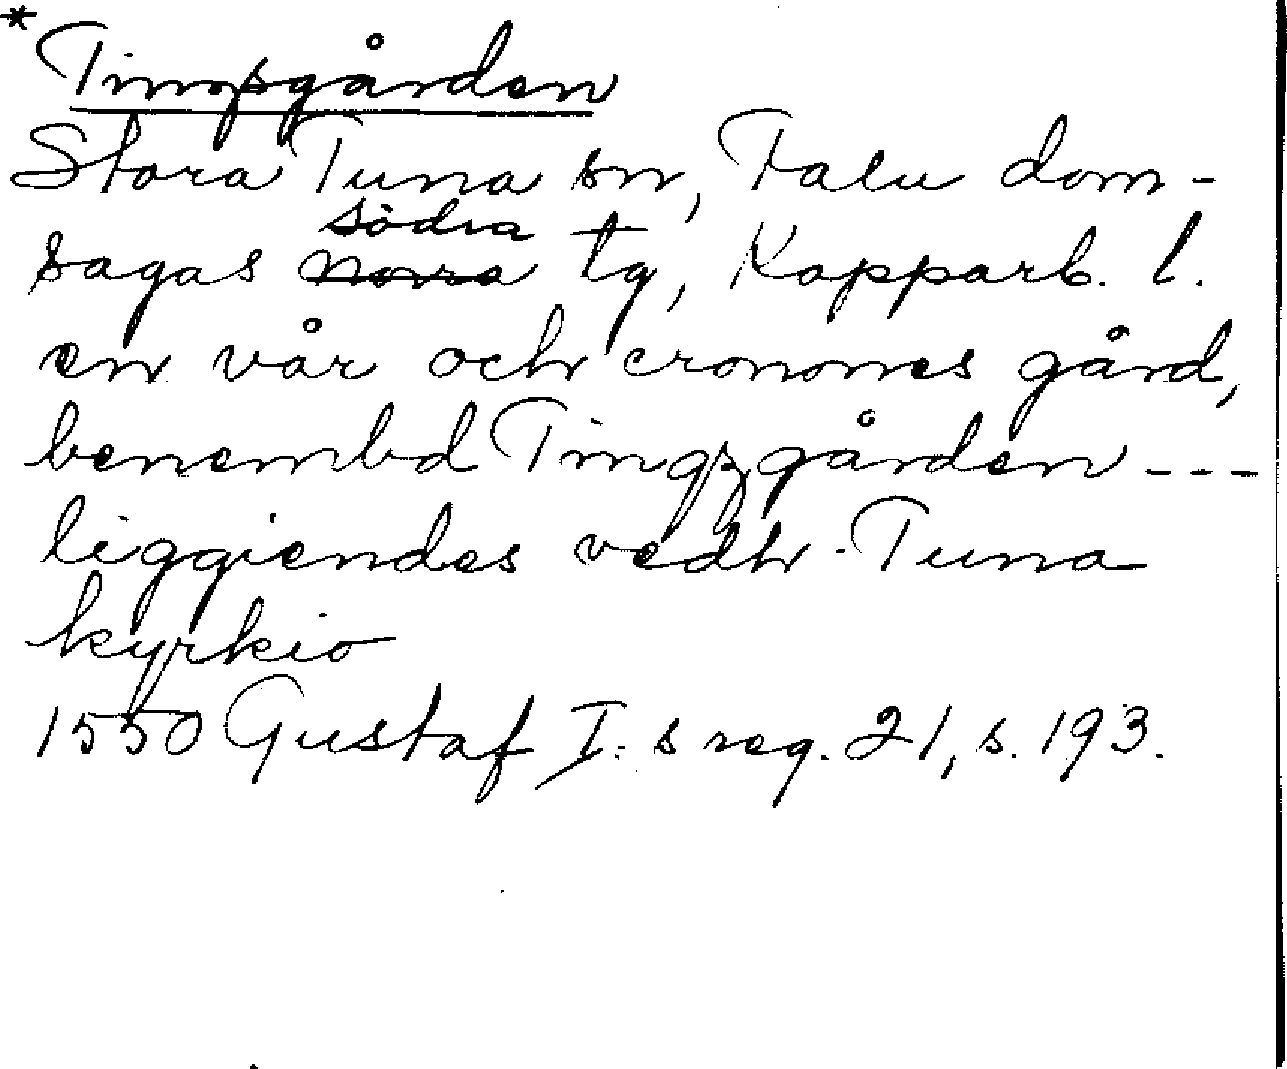 * Tingsgården
Stora Tuna sn, Falu dom-
sagas södra norra tg, Kopparb. l.
en vår och cronones gård,
benembd Tingzgården ---
liggiendes vedh Tuna
kyrkio
1550 Gustaf I:s reg. 21, s. 193.